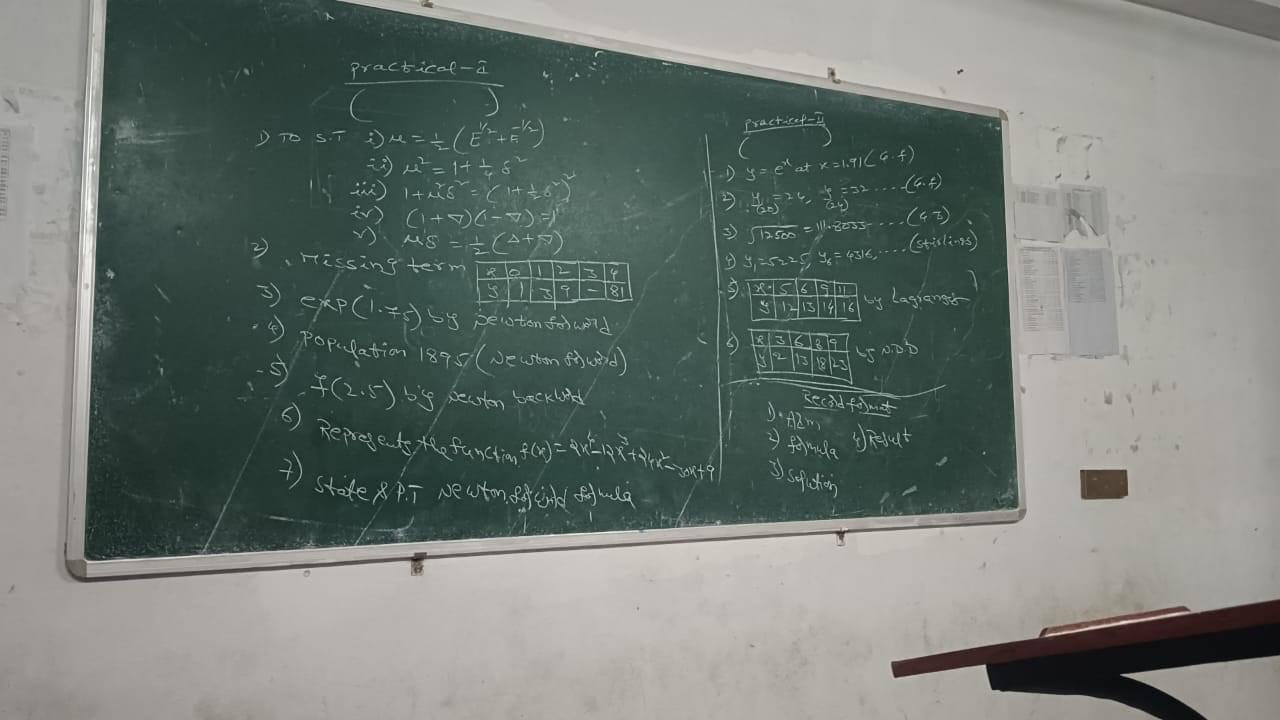 practical-I
( )
1) TO S.T i) μ = 1/2 (E^1/2 + E^-1/2)
ii) μ² = 1 + 1/4 δ²
iii) 1 + μ²δ² = (1 + 1/2 δ²)²
iv) (1+▽)(1-▽) = 1
v) μδ = 1/2 (Δ+▽)
2) Missing term
x 0 1 2 3 4
y 1 3 9 - 81
3) exp(1.75) by Newton forword
4) population 1895 (Newton forword)
5) f(2.5) by Newton backword
6) Represents the function f(x) = 2x⁴-12x³+24x²-30x+9
7) State & P.T Newton forword formula
practical-II
( )
1) y = e^x at x = 1.91 (G.f)
2) y(20) = 24, y(24) = 32 ..... (G.f)
3) √12500 = 111.8033 ..... (G.B)
4) y₁ = 5225, y₆ = 4316, ..... (Stirlings)
5) x 5 6 9 11
y 12 13 14 16
by Lagranges
6) x 3 6 8 9
y 2 13 18 23
by N.D.D
Record format
1) Aim
2) formula 4) Result
3) Solution